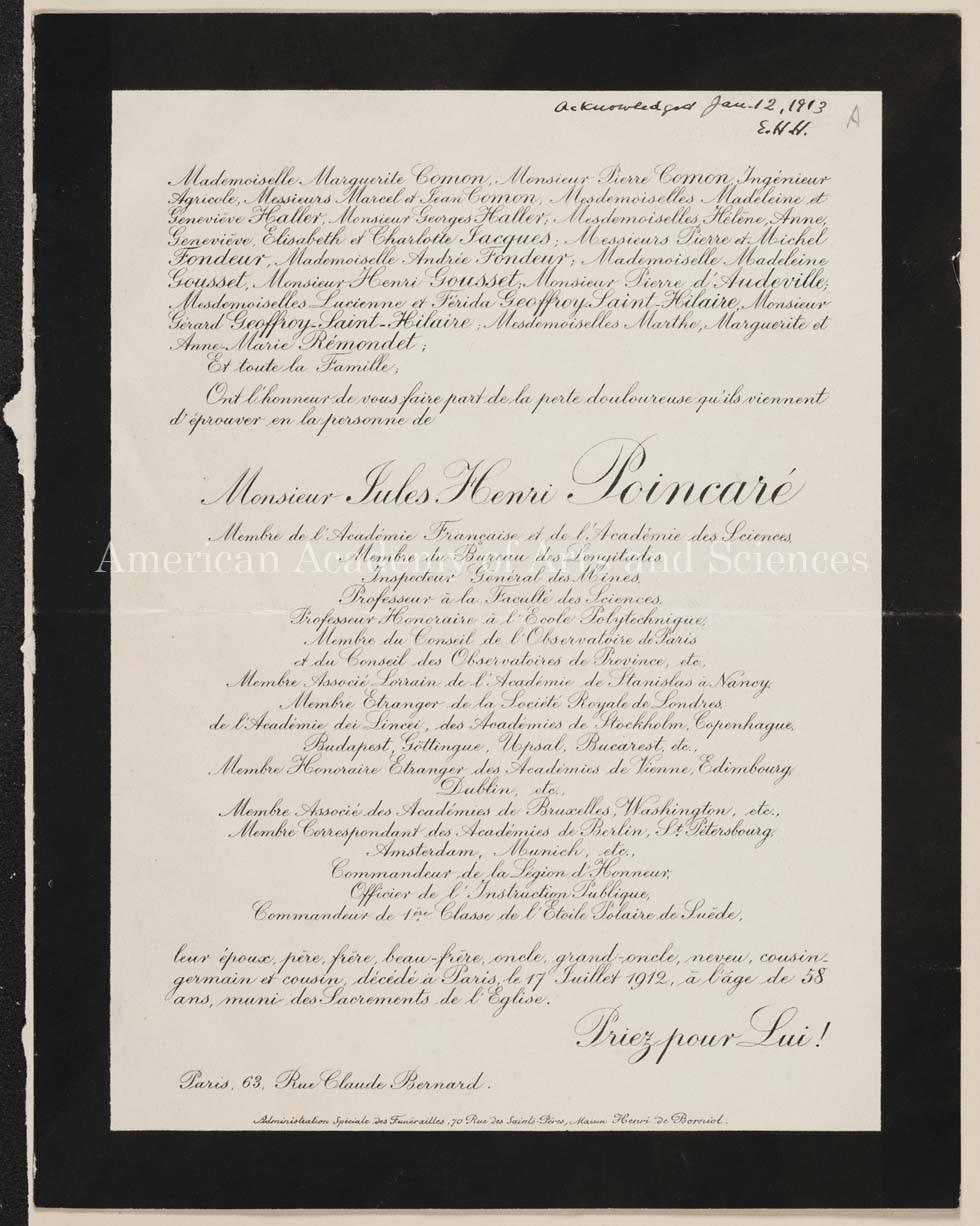 Acknowledged Jan. 12, 1913
E.H.H.
A
Mademoiselle Marguerite Comon, Monsieur Pierre Comon, Ingénieur
Agricole, Messieurs Marcel et Jean Comon, Mesdemoiselles Madeleine et
Geneviève Haller, Monsieur Georges Haller; Mesdemoiselles Hélène, Anne,
Geneviève, Elisabeth et Charlotte Jacques; Messieurs Pierre et Michel
Fondeur, Mademoiselle Andrée Fondeur; Mademoiselle Madeleine
Gousset, Monsieur Henri Gousset; Monsieur Pierre d'Audeville;
Mesdemoiselles Lucienne et Férida Geoffroy-Saint-Hilaire, Monsieur
Gérard Geoffroy-Saint-Hilaire; Mesdemoiselles Marthe, Marguerite et
Anne-Marie Rémondet;
Et toute la Famille;
Ont l'honneur de vous faire part de la perte douloureuse qu'ils viennent
d'éprouver en la personne de
Monsieur Jules Henri Poincaré
Membre de l'Académie Française et de l'Académie des Sciences,
American Academy of Arts and Sciences
Membre du Bureau des Longitudes,
Inspecteur Général des Mines,
Professeur à la Faculté des Sciences,
Professeur Honoraire à l'Ecole Polytechnique,
Membre du Conseil de l'Observatoire de Paris
et du Conseil des Observatoires de Province, etc,
Membre Associé Lorrain de l'Académie de Stanislas à Nancy,
Membre Etranger de la Société Royale de Londres,
de l'Académie dei Lincei, des Académies de Stockholm, Copenhague,
Budapest, Göttingue, Upsal, Bucarest, etc.,
Membre Honoraire Etranger des Académies de Vienne, Edimbourg,
Dublin, etc.,
Membre Associé des Académies de Bruxelles, Washington, etc.,
Membre Correspondant des Académies de Berlin, St. Pétersbourg,
Amsterdam, Munich, etc.,
Commandeur de la Légion d'Honneur,
Officier de l'Instruction Publique,
Commandeur de 1ère Classe de l'Etoile Polaire de Suède,
leur époux, père, frère, beau-frère, oncle, grand-oncle, neveu, cousin-
germain et cousin, décédé à Paris, le 17 Juillet 1912, à l'âge de 58
ans, muni des Sacrements de l'Eglise.
Priez pour Lui!
Paris, 63, Rue Claude Bernard.
Administration Spéciale des Funérailles, 70 Rue des Saints-Pères, Maison Henri de Borniol.